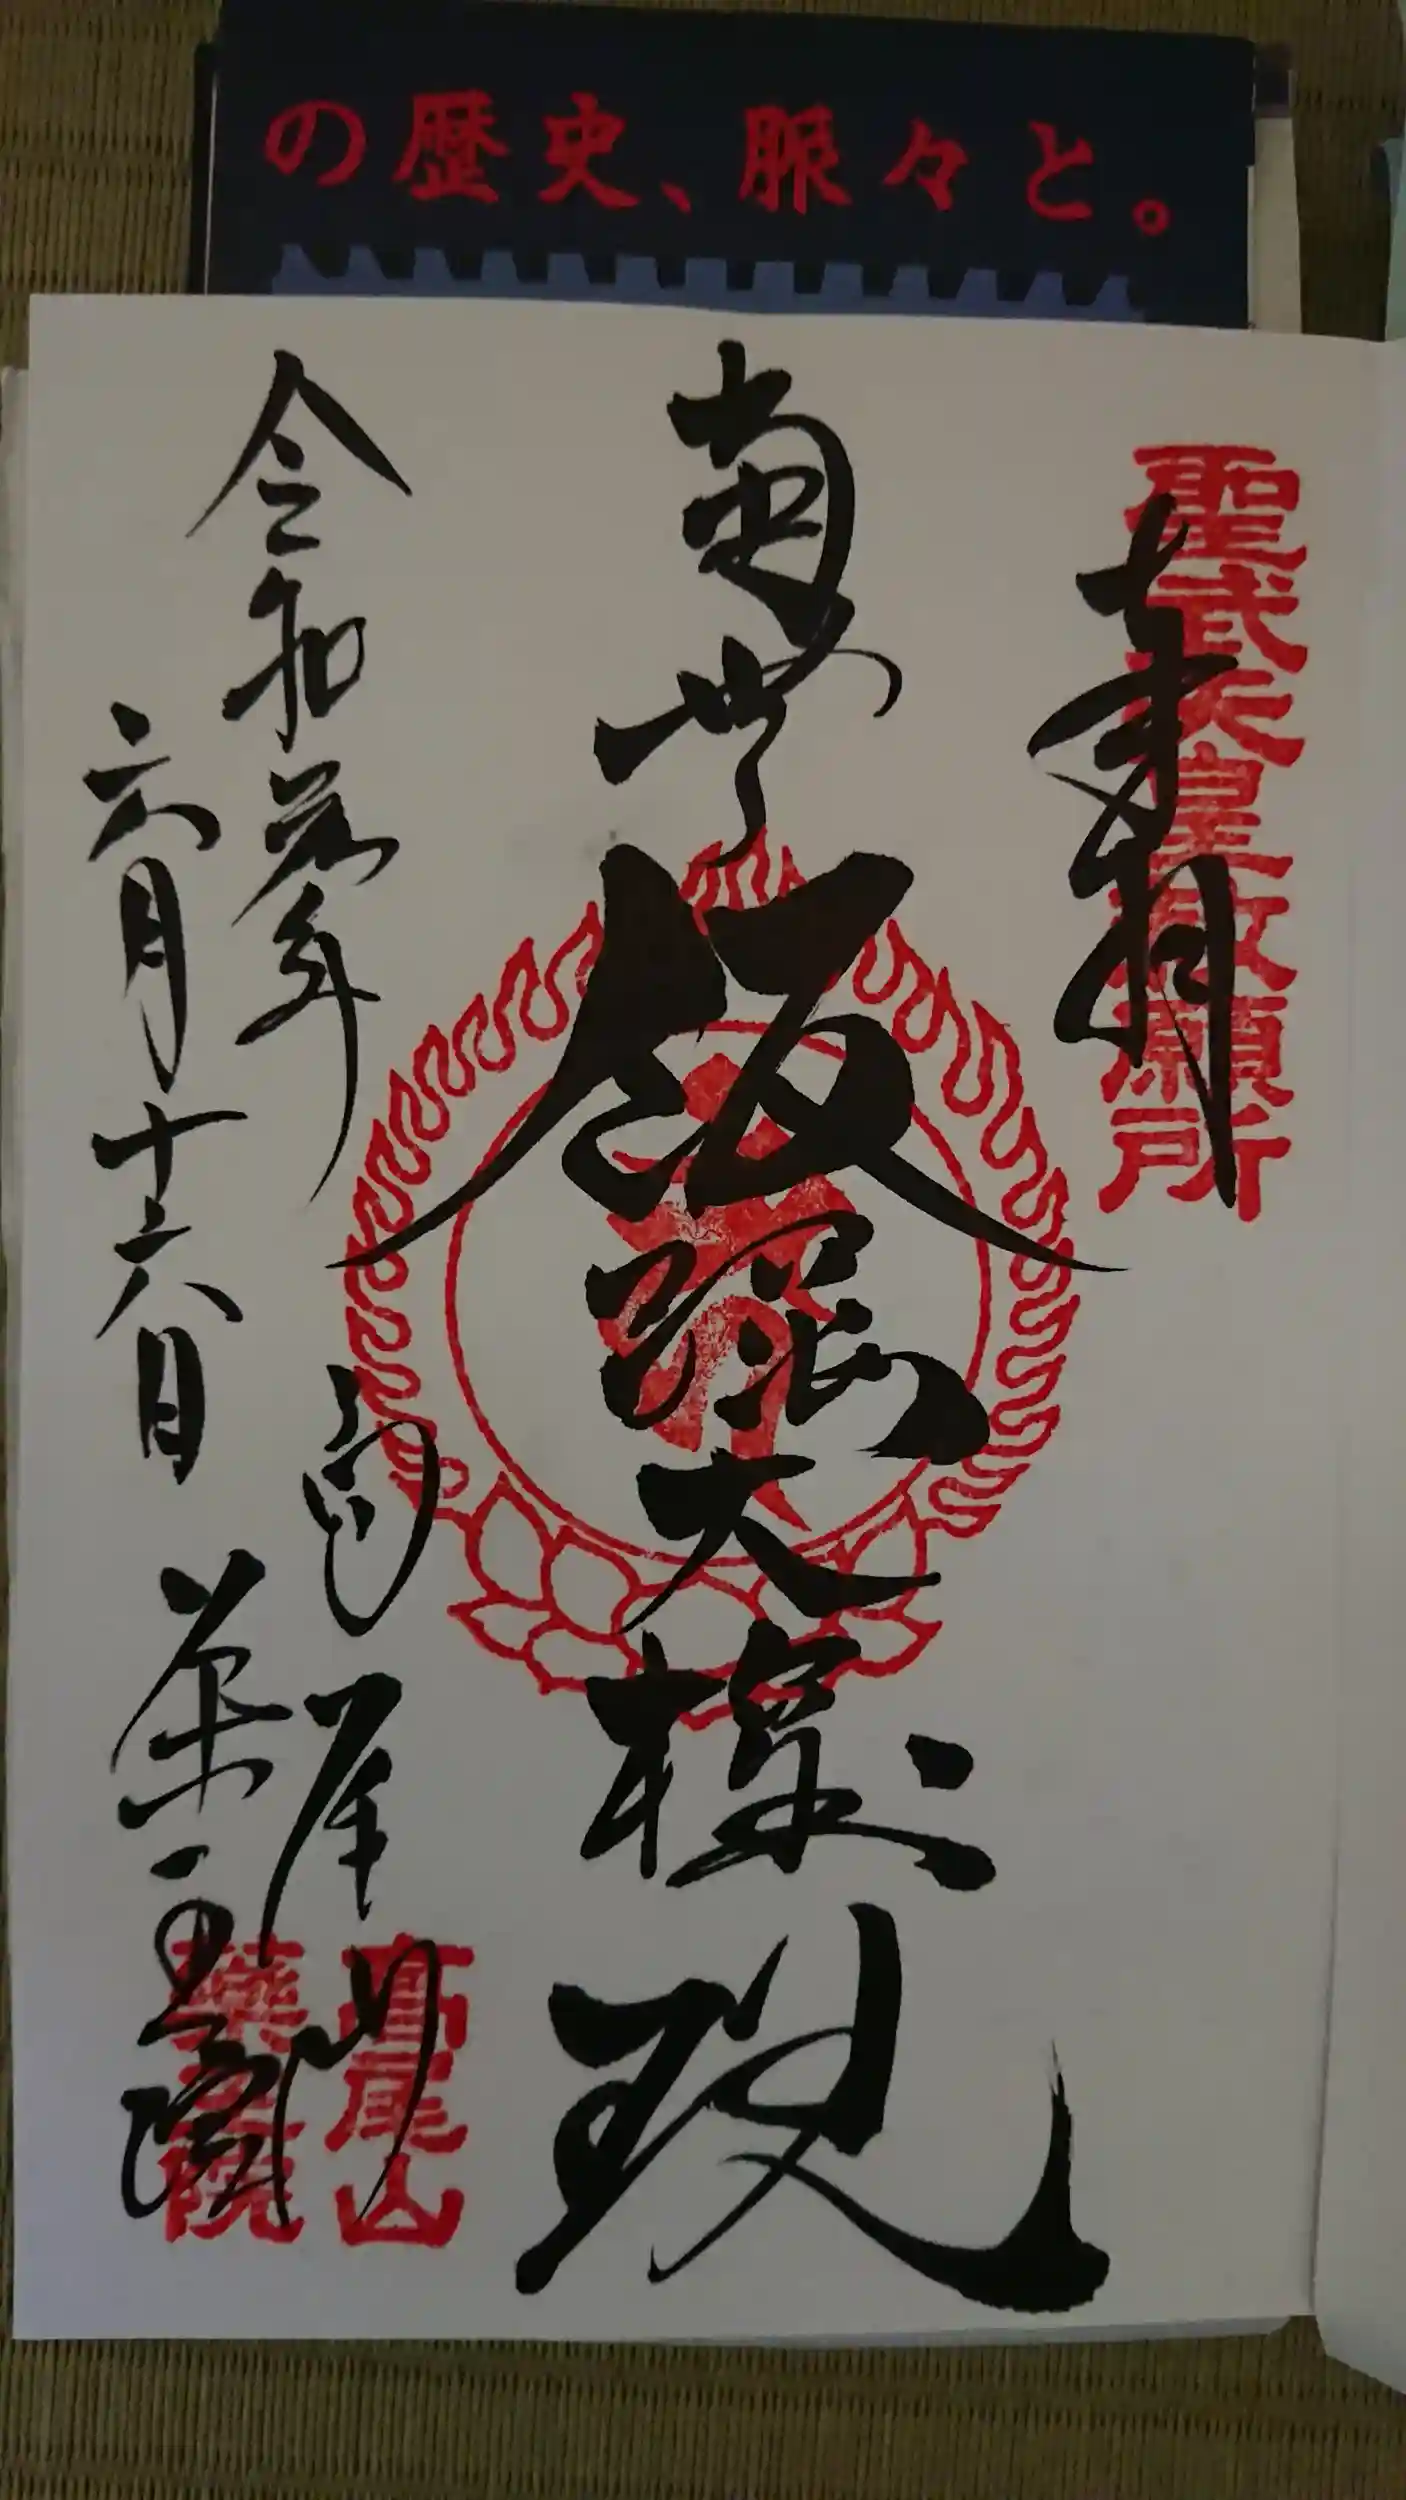 の歴史、脈々と。
聖武天皇勅願所
奉拝
南無飯縄大権現
令和元年
六月十六日
高尾山
薬王院
高尾山
薬王院